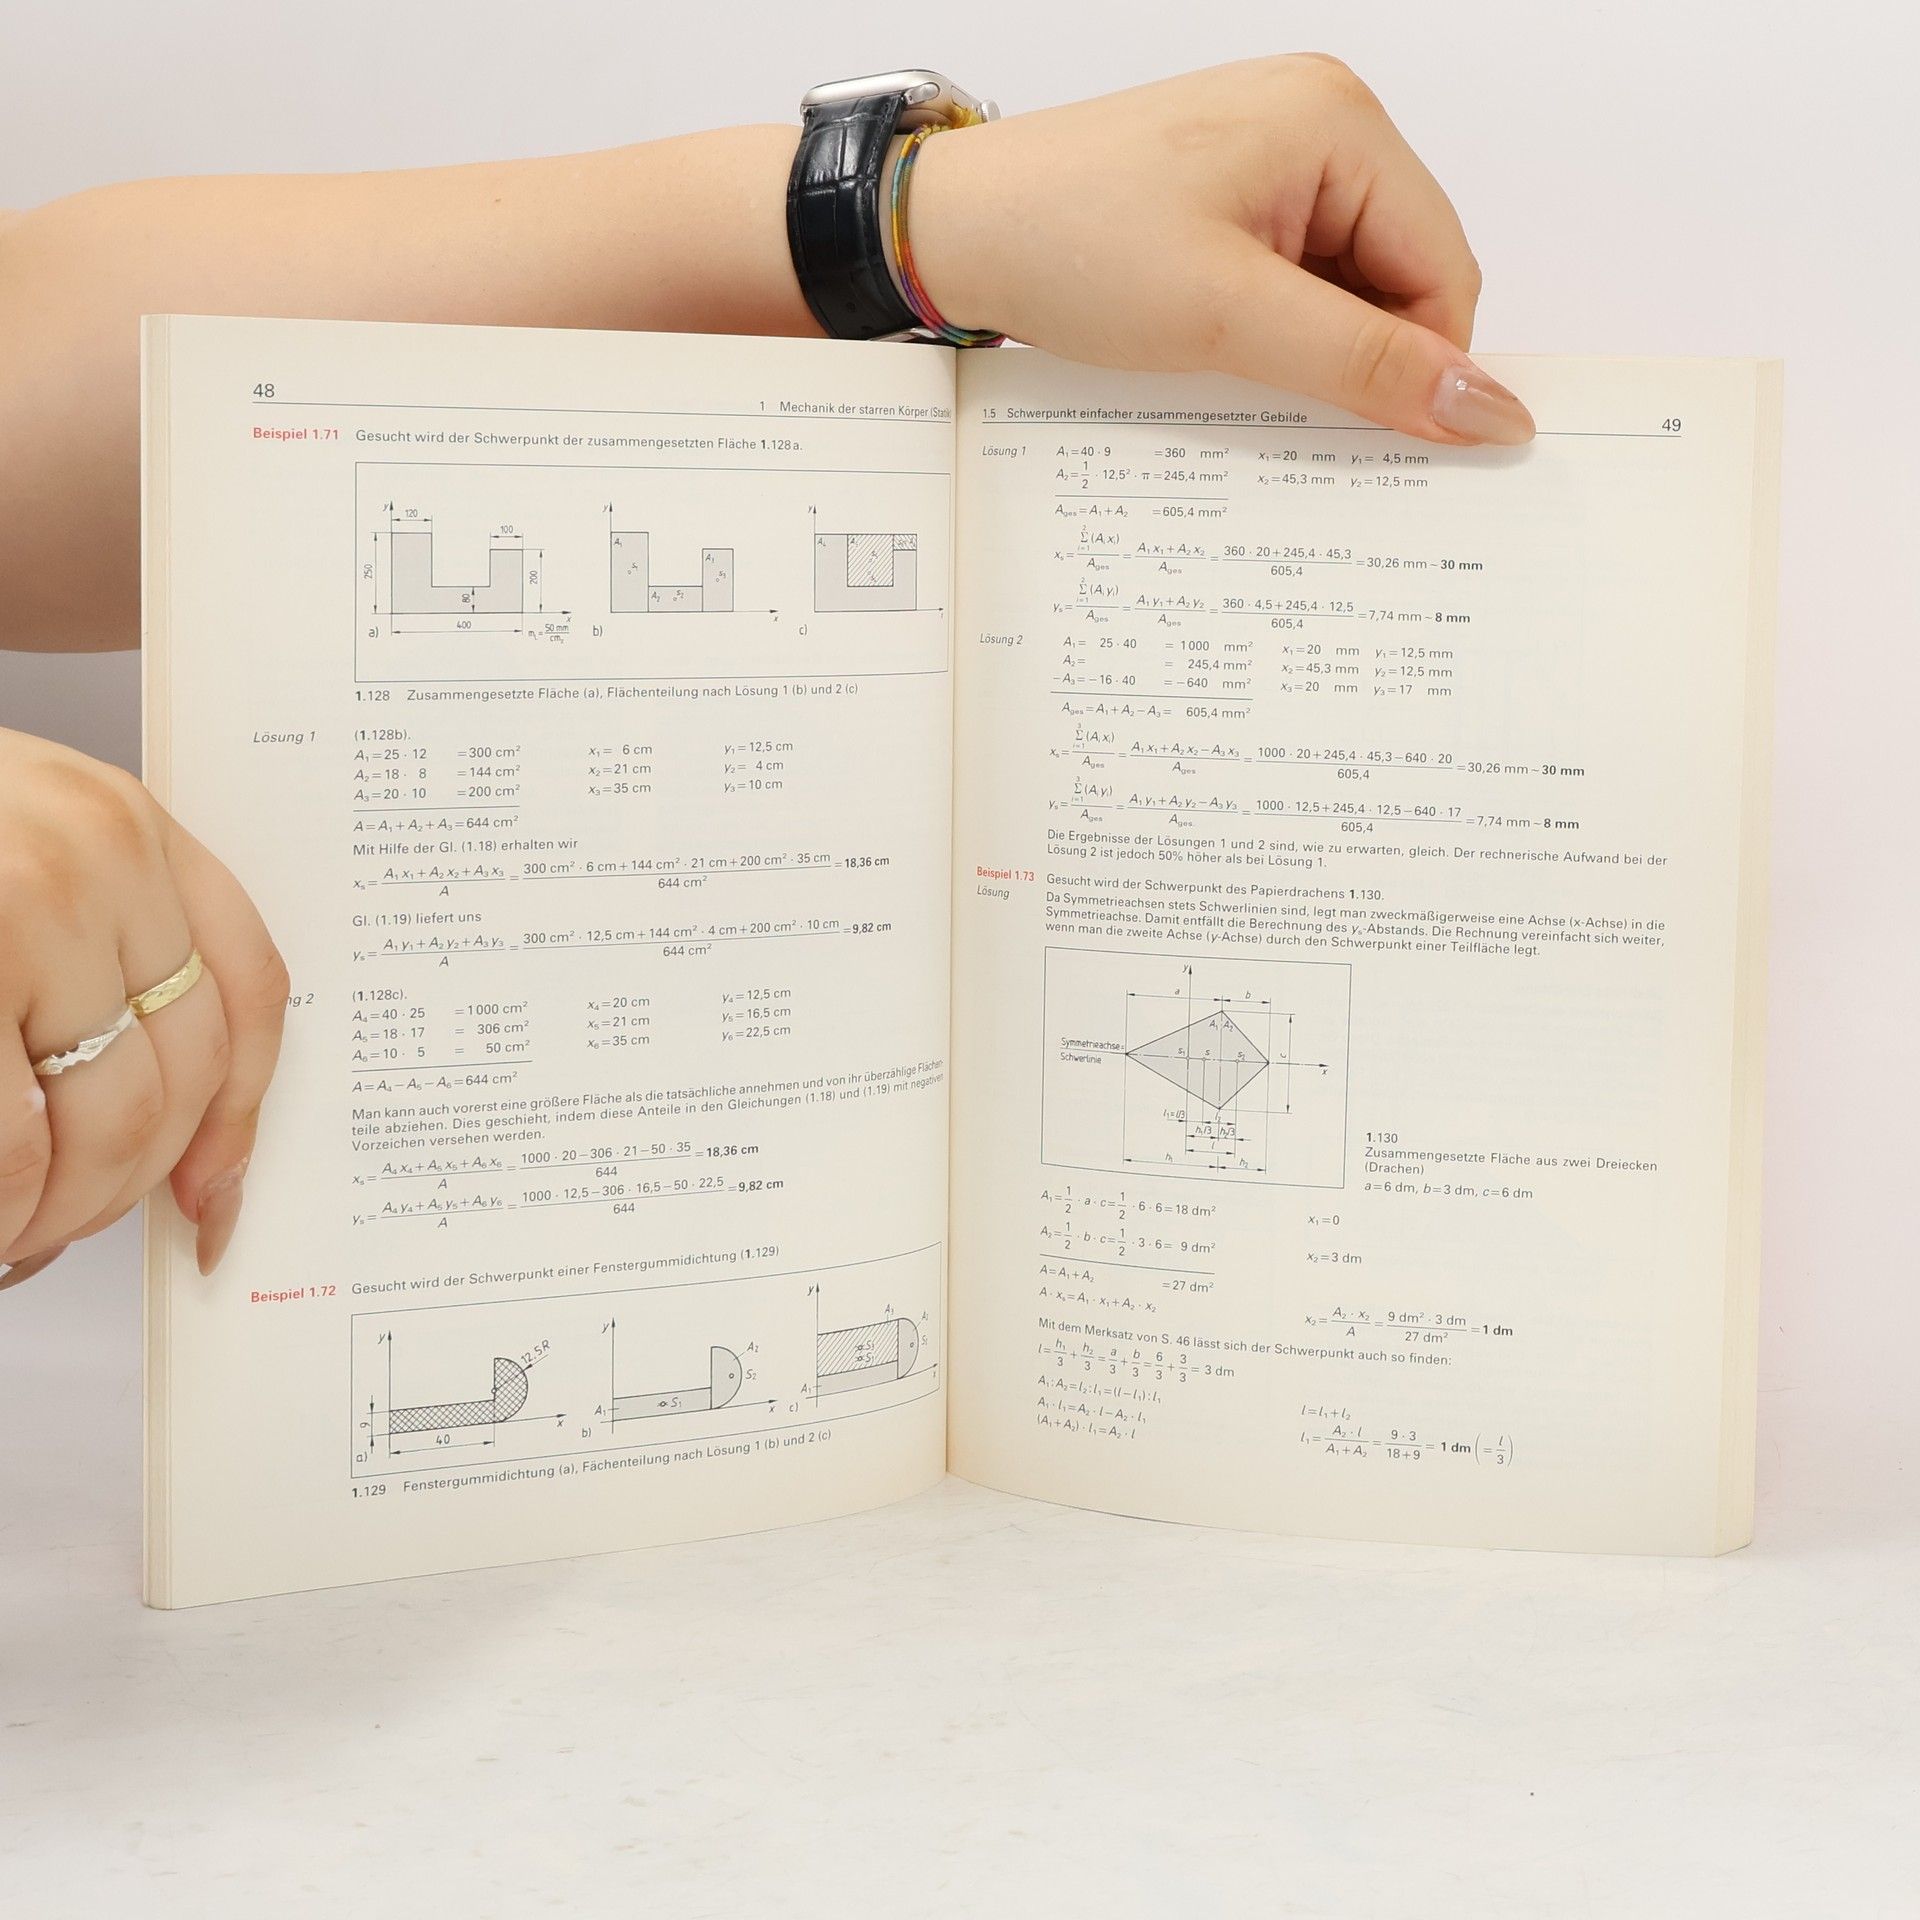 48
1 Mechanik der starren Körper
Beispiel 1.71 Gesucht wird der Schwerpunkt der zusammengesetzten Fläche 1.128a.
y 120 100 250 200 80 400 x a) mL = 50 mm / cmz
y A₁ S₁ A₂ S₂ A₃ S₃ x b)
y A₄ c)
1.128 Zusammengesetzte Fläche (a), Flächenteilung nach Lösung 1 (b) und 2 (c)
Lösung 1 (1.128b).
A₁=25 · 12 =300 cm² x₁= 6 cm y₁=12,5 cm
A₂=18 · 8 =144 cm² x₂=21 cm y₂= 4 cm
A₃=20 · 10 =200 cm² x₃=35 cm y₃=10 cm
A=A₁+A₂+A₃=644 cm²
Mit Hilfe der Gl. (1.18) erhalten wir
xₛ= (A₁x₁+A₂x₂+A₃x₃)/A = (300 cm² · 6 cm+144 cm² · 21 cm+200 cm² · 35 cm)/(644 cm²) =18,36 cm
Gl. (1.19) liefert uns
yₛ= (A₁y₁+A₂y₂+A₃y₃)/A = (300 cm² · 12,5 cm+144 cm² · 4 cm+200 cm² · 10 cm)/(644 cm²) =9,82 cm
ng 2 (1.128c).
A₄=40 · 25 =1000 cm² x₄=20 cm y₄=12,5 cm
A₅=18 · 17 = 306 cm² x₅=21 cm y₅=16,5 cm
A₆=10 · 5 = 50 cm² x₆=35 cm y₆=22,5 cm
A=A₄−A₅−A₆=644 cm²
Man kann auch vorerst eine größere Fläche als die tatsächliche annehmen und von ihr überzählige Flächen-
teile abziehen. Dies geschieht, indem diese Anteile in den Gleichungen (1.18) und (1.19) mit negativen
Vorzeichen versehen werden.
xₛ= (A₄x₄+A₅x₅+A₆x₆)/A = (1000 · 20−306 · 21−50 · 35)/644 =18,36 cm
yₛ= (A₄y₄+A₅y₅+A₆y₆)/A = (1000 · 12,5−306 · 16,5−50 · 22,5)/644 =9,82 cm
Beispiel 1.72 Gesucht wird der Schwerpunkt einer Fenstergummidichtung (1.129)
y 12,5R 9 40 x a)
y A₁ S₁ A₂ S₂ x b)
y A₃ A₁ x c)
1.129 Fenstergummidichtung (a), Fächenteilung nach Lösung 1 (b) und 2 (c)
1.5 Schwerpunkt einfacher zusammengesetzter Gebilde 49
Lösung 1 A₁=40 · 9 =360 mm² x₁=20 mm y₁= 4,5 mm
A₂= 1/2 · 12,5² · π=245,4 mm² x₂=45,3 mm y₂=12,5 mm
Ages=A₁+A₂ =605,4 mm²
xₛ= Σ(Aᵢxᵢ)/Ages = (A₁x₁+A₂x₂)/Ages = (360 · 20+245,4 · 45,3)/605,4 =30,26 mm ~ 30 mm
yₛ= Σ(Aᵢyᵢ)/Ages = (A₁y₁+A₂y₂)/Ages = (360 · 4,5+245,4 · 12,5)/605,4 =7,74 mm ~ 8 mm
Lösung 2 A₁= 25 · 40 = 1000 mm² x₁=20 mm y₁=12,5 mm
A₂= = 245,4 mm² x₂=45,3 mm y₂=12,5 mm
−A₃=−16 · 40 =−640 mm² x₃=20 mm y₃=17 mm
Ages=A₁+A₂−A₃= 605,4 mm²
xₛ= Σ(Aᵢxᵢ)/Ages = (A₁x₁+A₂x₂−A₃x₃)/Ages = (1000 · 20+245,4 · 45,3−640 · 20)/605,4 =30,26 mm ~ 30 mm
yₛ= Σ(Aᵢyᵢ)/Ages = (A₁y₁+A₂y₂−A₃y₃)/Ages = (1000 · 12,5+245,4 · 12,5−640 · 17)/605,4 =7,74 mm ~ 8 mm
Die Ergebnisse der Lösungen 1 und 2 sind, wie zu erwarten, gleich. Der rechnerische Aufwand bei der
Lösung 2 ist jedoch 50% höher als bei Lösung 1.
Beispiel 1.73 Gesucht wird der Schwerpunkt des Papierdrachens 1.130.
Lösung Da Symmetrieachsen stets Schwerlinien sind, legt man zweckmäßigerweise eine Achse (x-Achse) in die
Symmetrieachse. Damit entfällt die Berechnung des yₛ-Abstands. Die Rechnung vereinfacht sich weiter,
wenn man die zweite Achse (y-Achse) durch den Schwerpunkt einer Teilfläche legt.
y a b A₁ A₂ c
Symmetrieachse= S₁ S S₂ x
Schwerlinie
l₁=l/3 l₂ h₁/3 h₂/3 l h₁ h₂
1.130
Zusammengesetzte Fläche aus zwei Dreiecken
(Drachen)
a=6 dm, b=3 dm, c=6 dm
A₁= 1/2 · a · c= 1/2 · 6 · 6=18 dm² x₁=0
A₂= 1/2 · b · c= 1/2 · 3 · 6= 9 dm² x₂=3 dm
A=A₁+A₂ =27 dm²
A · xₛ=A₁ · x₁+A₂ · x₂ x₂= (A₂ · x₂)/A = (9 dm² · 3 dm)/(27 dm²) =1 dm
Mit dem Merksatz von S. 46 lässt sich der Schwerpunkt auch so finden:
l= h₁/3 + h₂/3 = a/3 + b/3 = 6/3 + 3/3 = 3 dm
A₁:A₂=l₂:l₁=(l−l₁):l₁ l=l₁+l₂
A₁ · l₁=A₂ · l−A₂ · l₁
(A₁+A₂) · l₁=A₂ · l l₁= (A₂ · l)/(A₁+A₂) = (9 · 3)/(18+9) = 1 dm (= l/3)